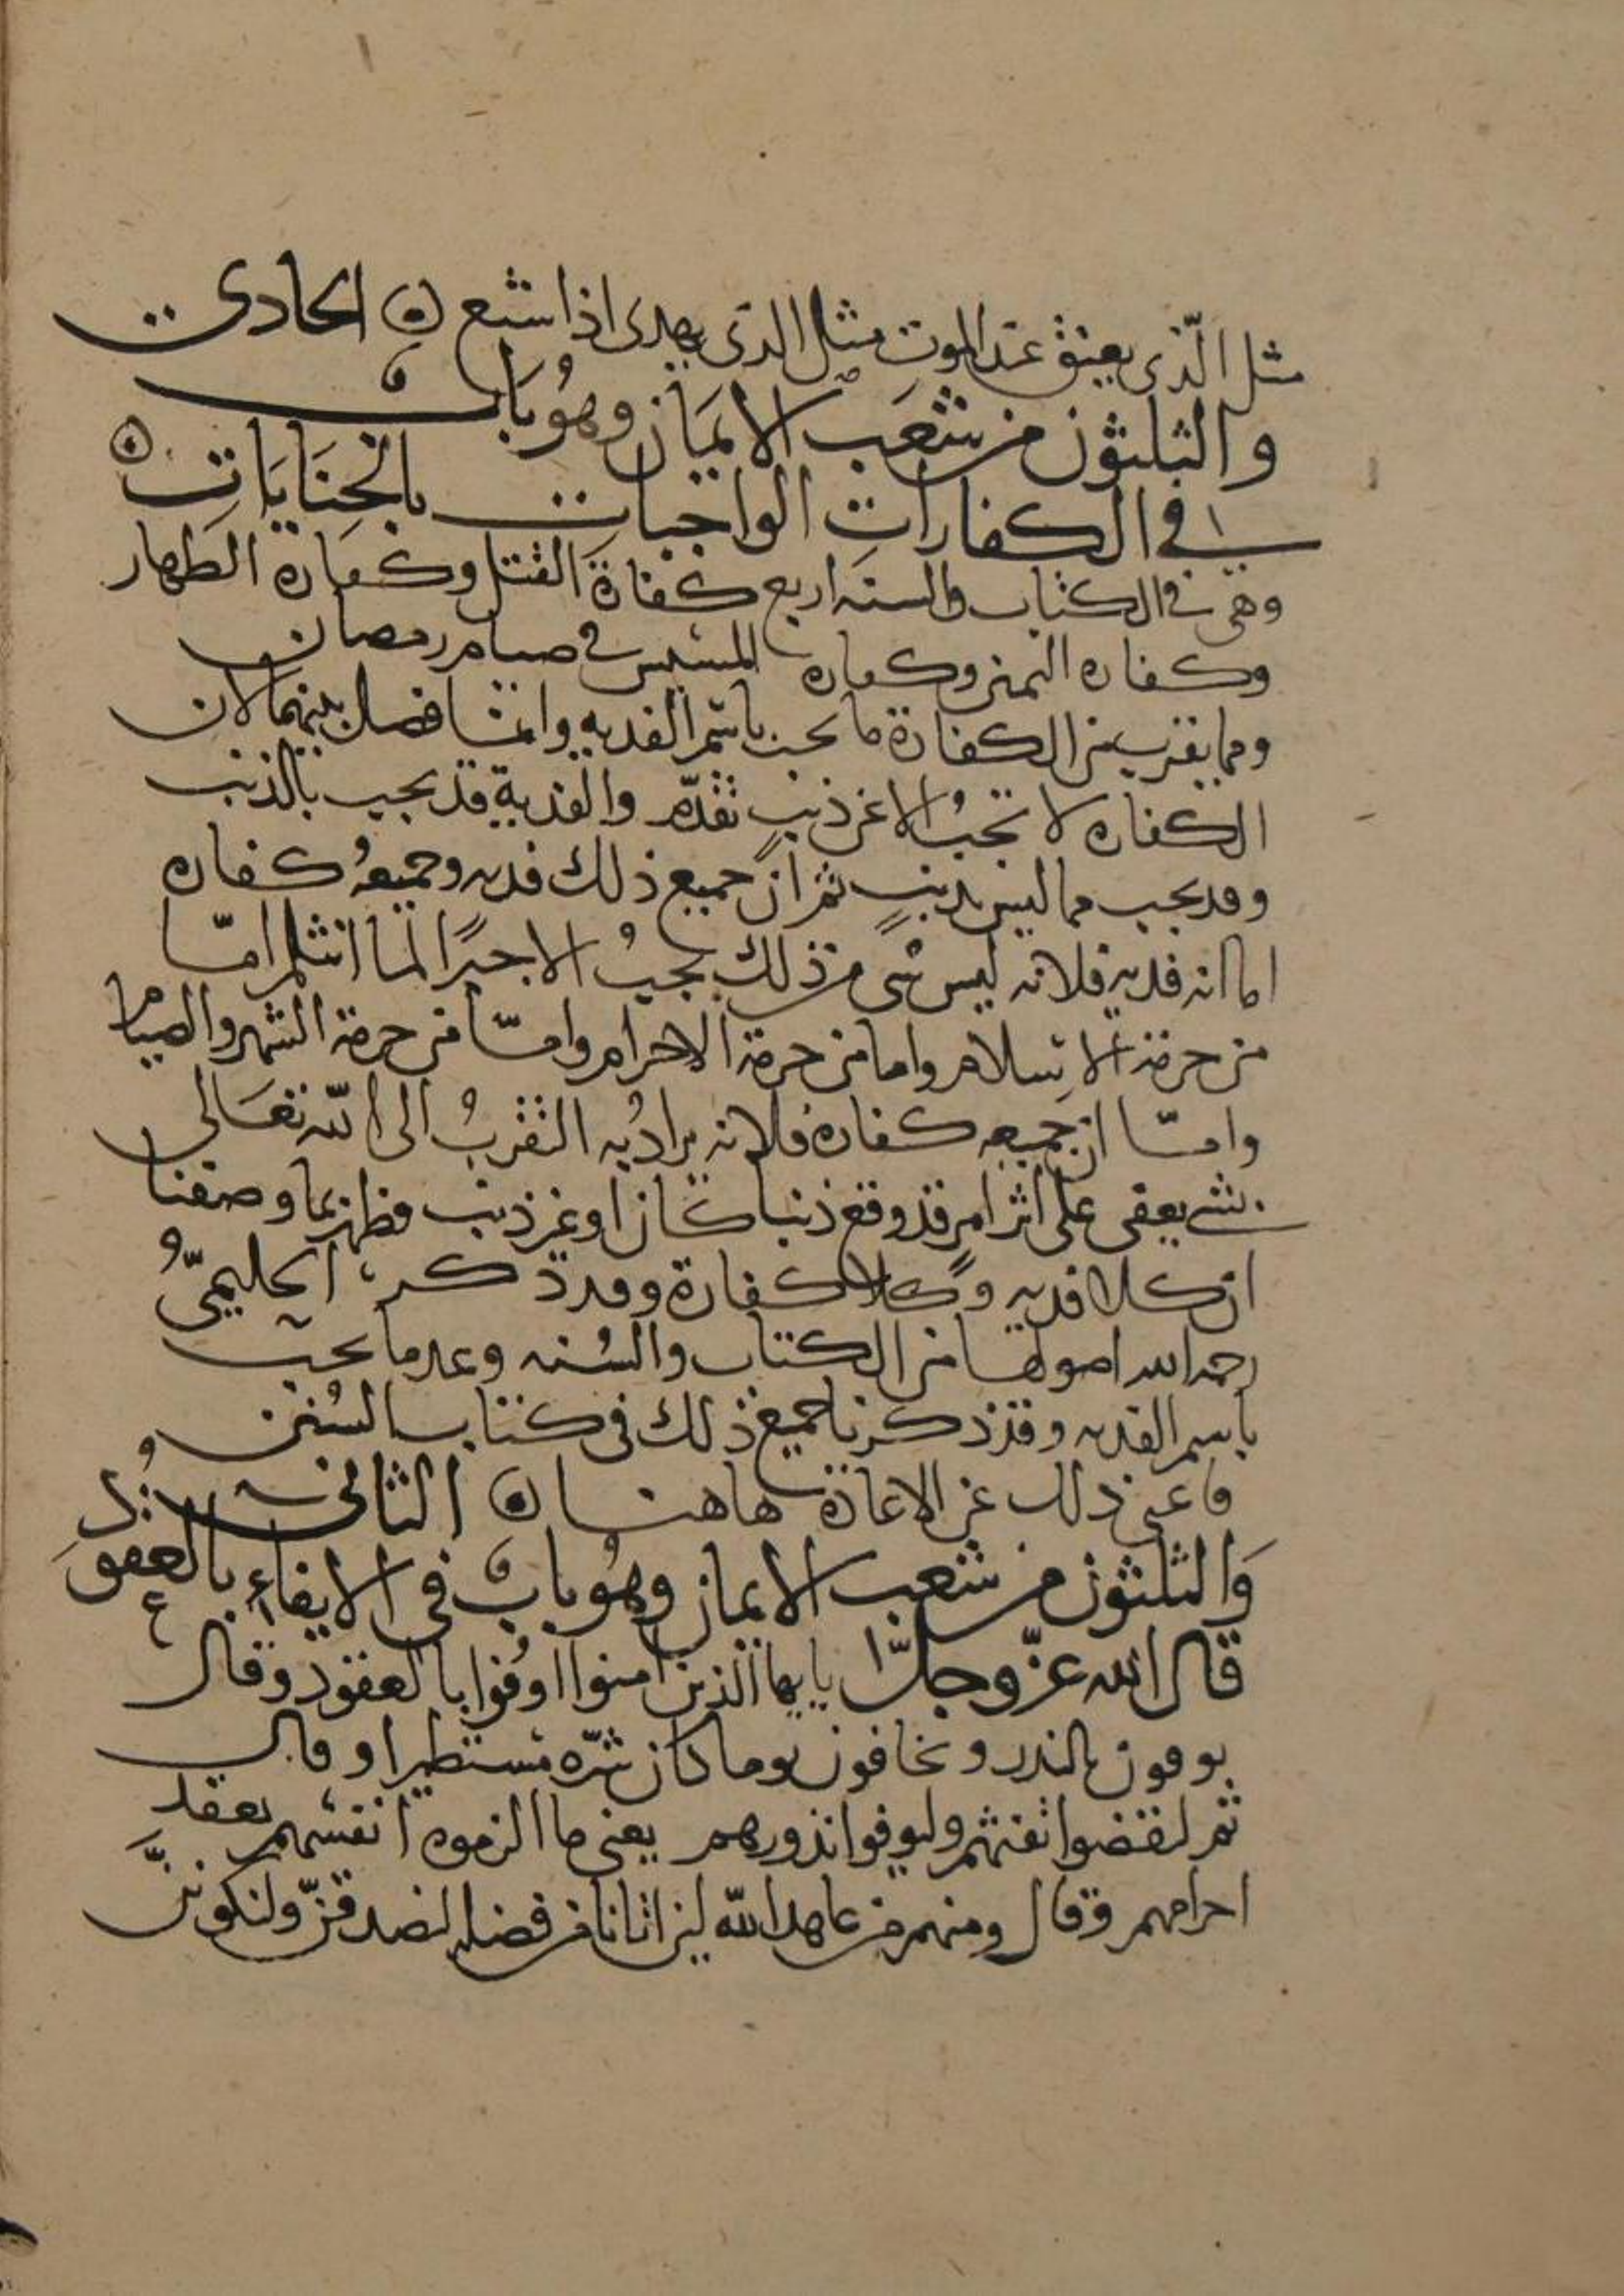 مثل الّذي يعتق عند الموت مثل الذي يهدي اذا شبع ه الحادي
والثلثون من شعب الايمان وهو باب
في الكفارات الواجبات بالجنايات ه
وهي في الكتاب والسنه اربع كفارة القتل وكفاره الظهار
وكفاره اليمين وكفاره المسيس في صيام رمضان
ومما يقرب من الكفارة ما يجب باسم الفديه وانما فصل بينهما لان
الكفاره لا تجب الا عن ذنب تقدّم والفدية قد تجب بالذنب
وقد يجب مما ليس بذنب ثم ان جميع ذلك فديه وجميعه كفاره
اما انه فديه فلانه ليس شي من ذلك يجب الا جبرًا لما انثلم امّا
من حرمة الاسلام واما من حرمة الاحرام وامّا من حرمة الشهر والصيام
وامّا ان جميعه كفارة فلانه يراد به التقرب الى الله تعالى
بشي يعفى على اثر امر قد وقع ذنبا كان او غير ذنب فظهر بما وصفنا
ان كلا فديه وكلا كفارة وقد ذكر الحليميّ
رحمه الله اصولها من الكتاب والسنه وعد ما يجب
باسم الفديه وقد ذكرنا جميع ذلك في كتاب السنن
فاغنى ذلك عن الاعادة هاهنا ه الثاني
والثلثون من شعب الايمان وهو باب في الايفاء بالعقود
قال الله عزّ وجلّ يا يها الذين امنوا اوفوا بالعقود وقال
يوفون بالنذر ويخافون يوما كان شرّه مستطيرا وقال
ثم ليقضوا تفثهم وليوفوا نذورهم يعني ما الزموه انفسهم بعقد
احرامهم وقال ومنهم من عاهد الله لئن اتانا من فضله لنصدقنّ ولنكوننّ